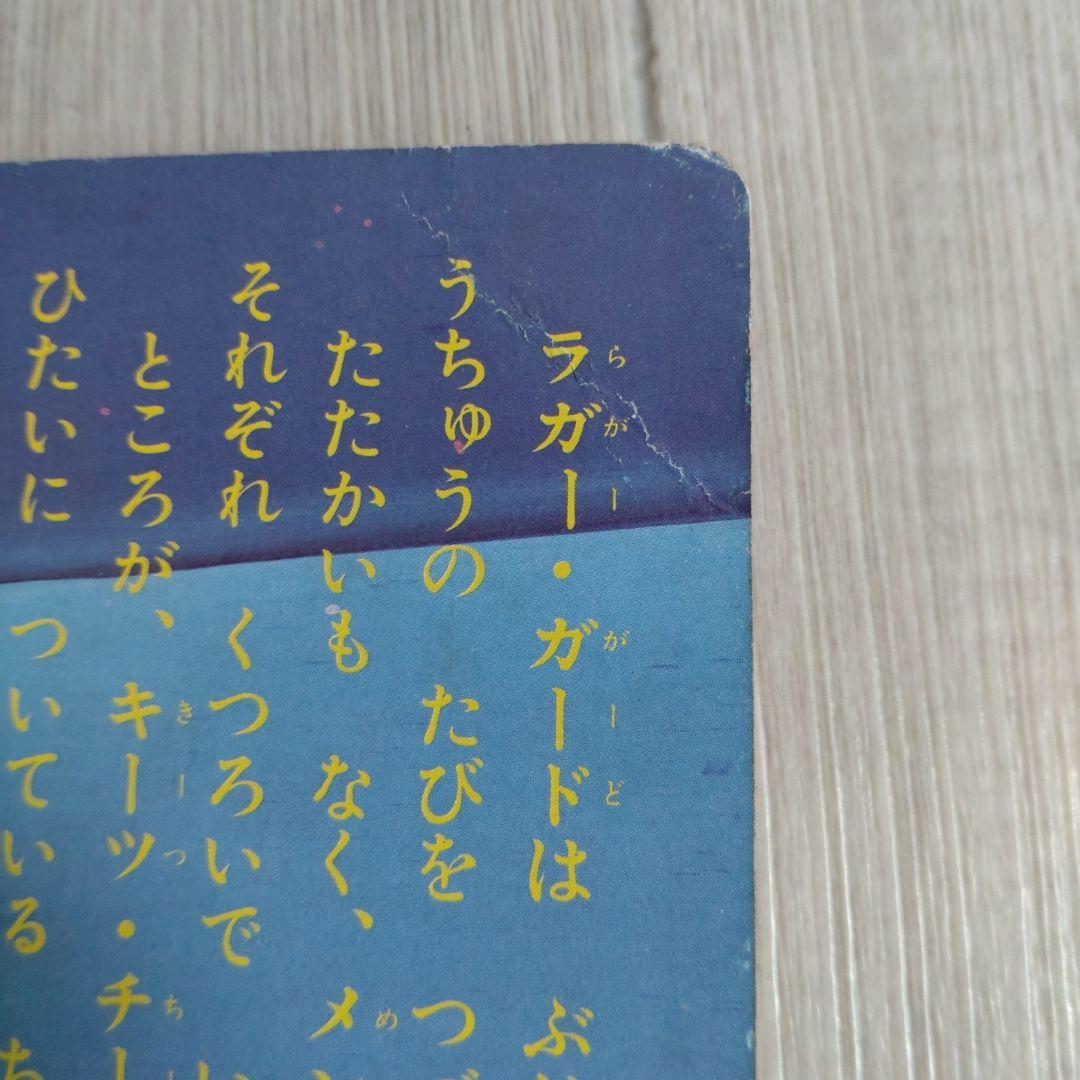 ラガー・ガードは ぶ
うちゅうの たびを つづ
たたかいも なく、 メ
それぞれ くつろいで
ところが、 キーツ・チー
ひたいに ついている ち